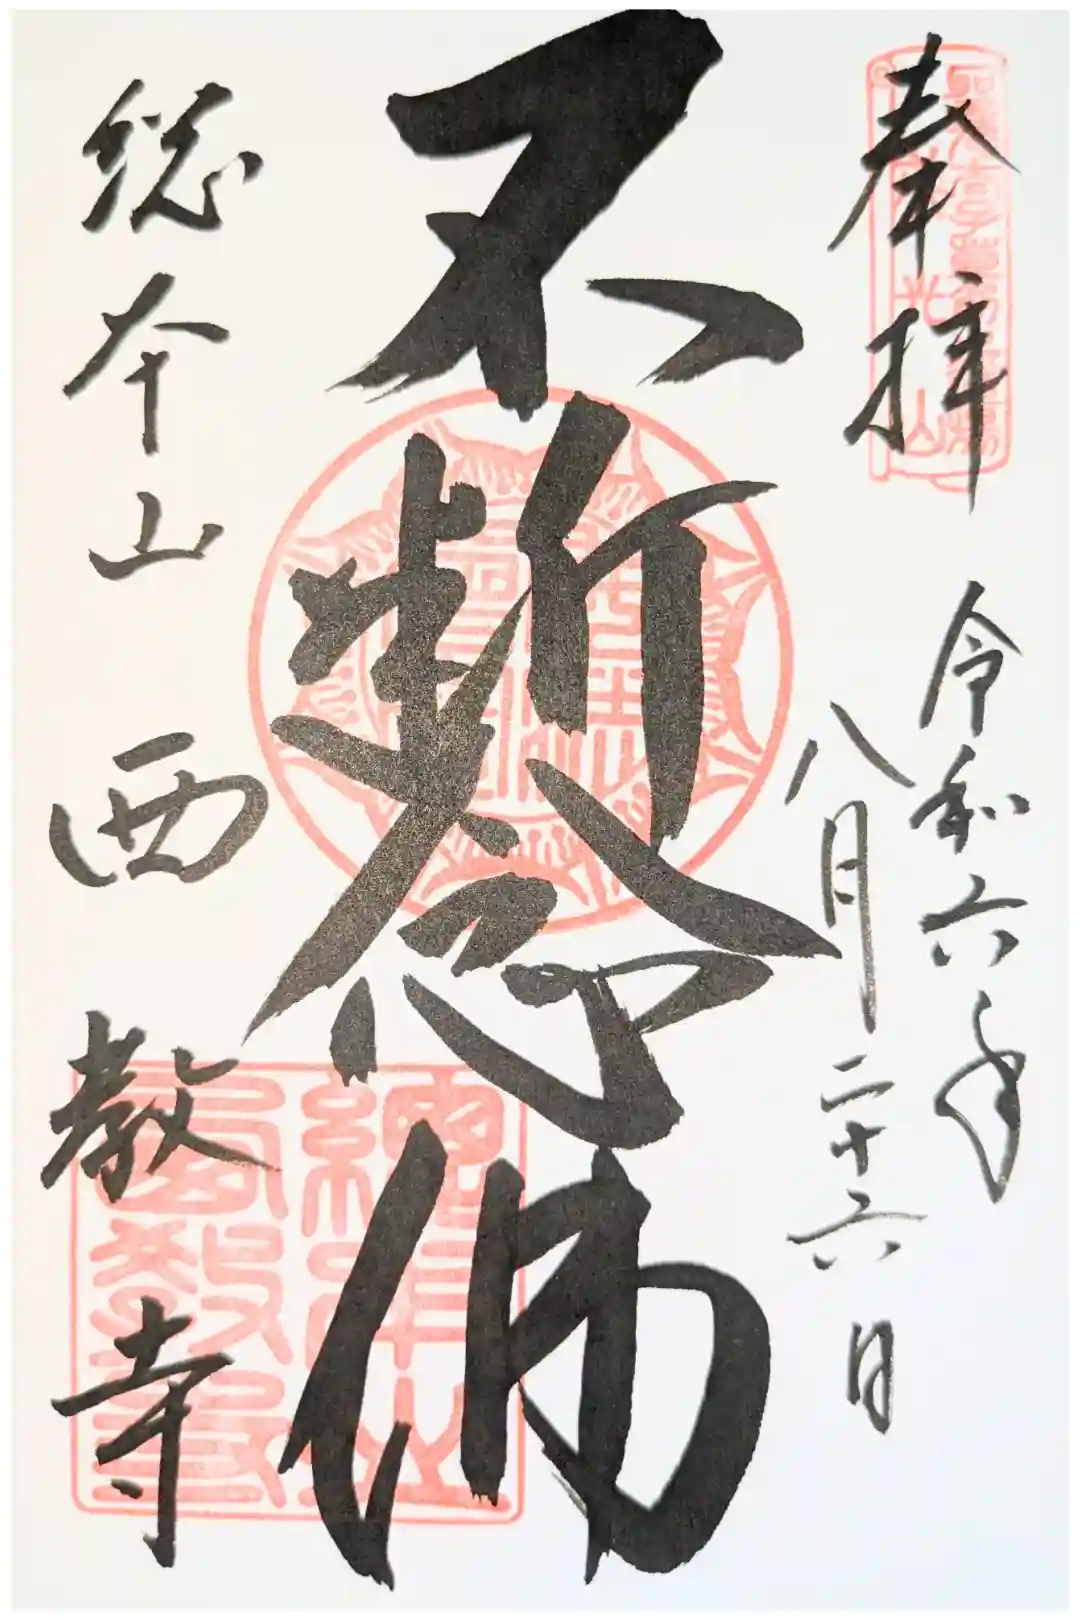 奉拝
令和六年
八月二十六日
不断念佛
総本山
西教寺